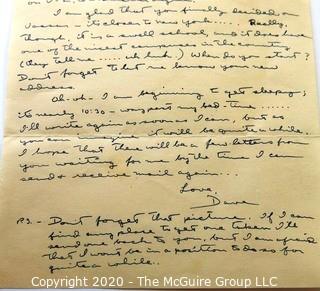 I am glad that you finally decided on
Vassar - it's closer to new york..... Really,
though, it is a swell school, and it does have
one of the nicest campuses in the country
(they tell me ..... uh huh.) When do you start?
Don't forget to let me know your new
address.
Oh-oh - I am beginning to get sleepy;
it's nearly 10:30 - way past my bed-time......
I'll write again as soon as I can, but as
you can imagine it will be quite a while.
I hope that there will be a few letters from
you waiting for me by the time I can
send & receive mail again...
Love,
Dave
P.S. - Don't forget that picture. If I can
find any place to get one taken I'll
send one back to you, but I am afraid
that I won't be in a position to do so for
quite a while..
Copyright 2020 - The McGuire Group LLC